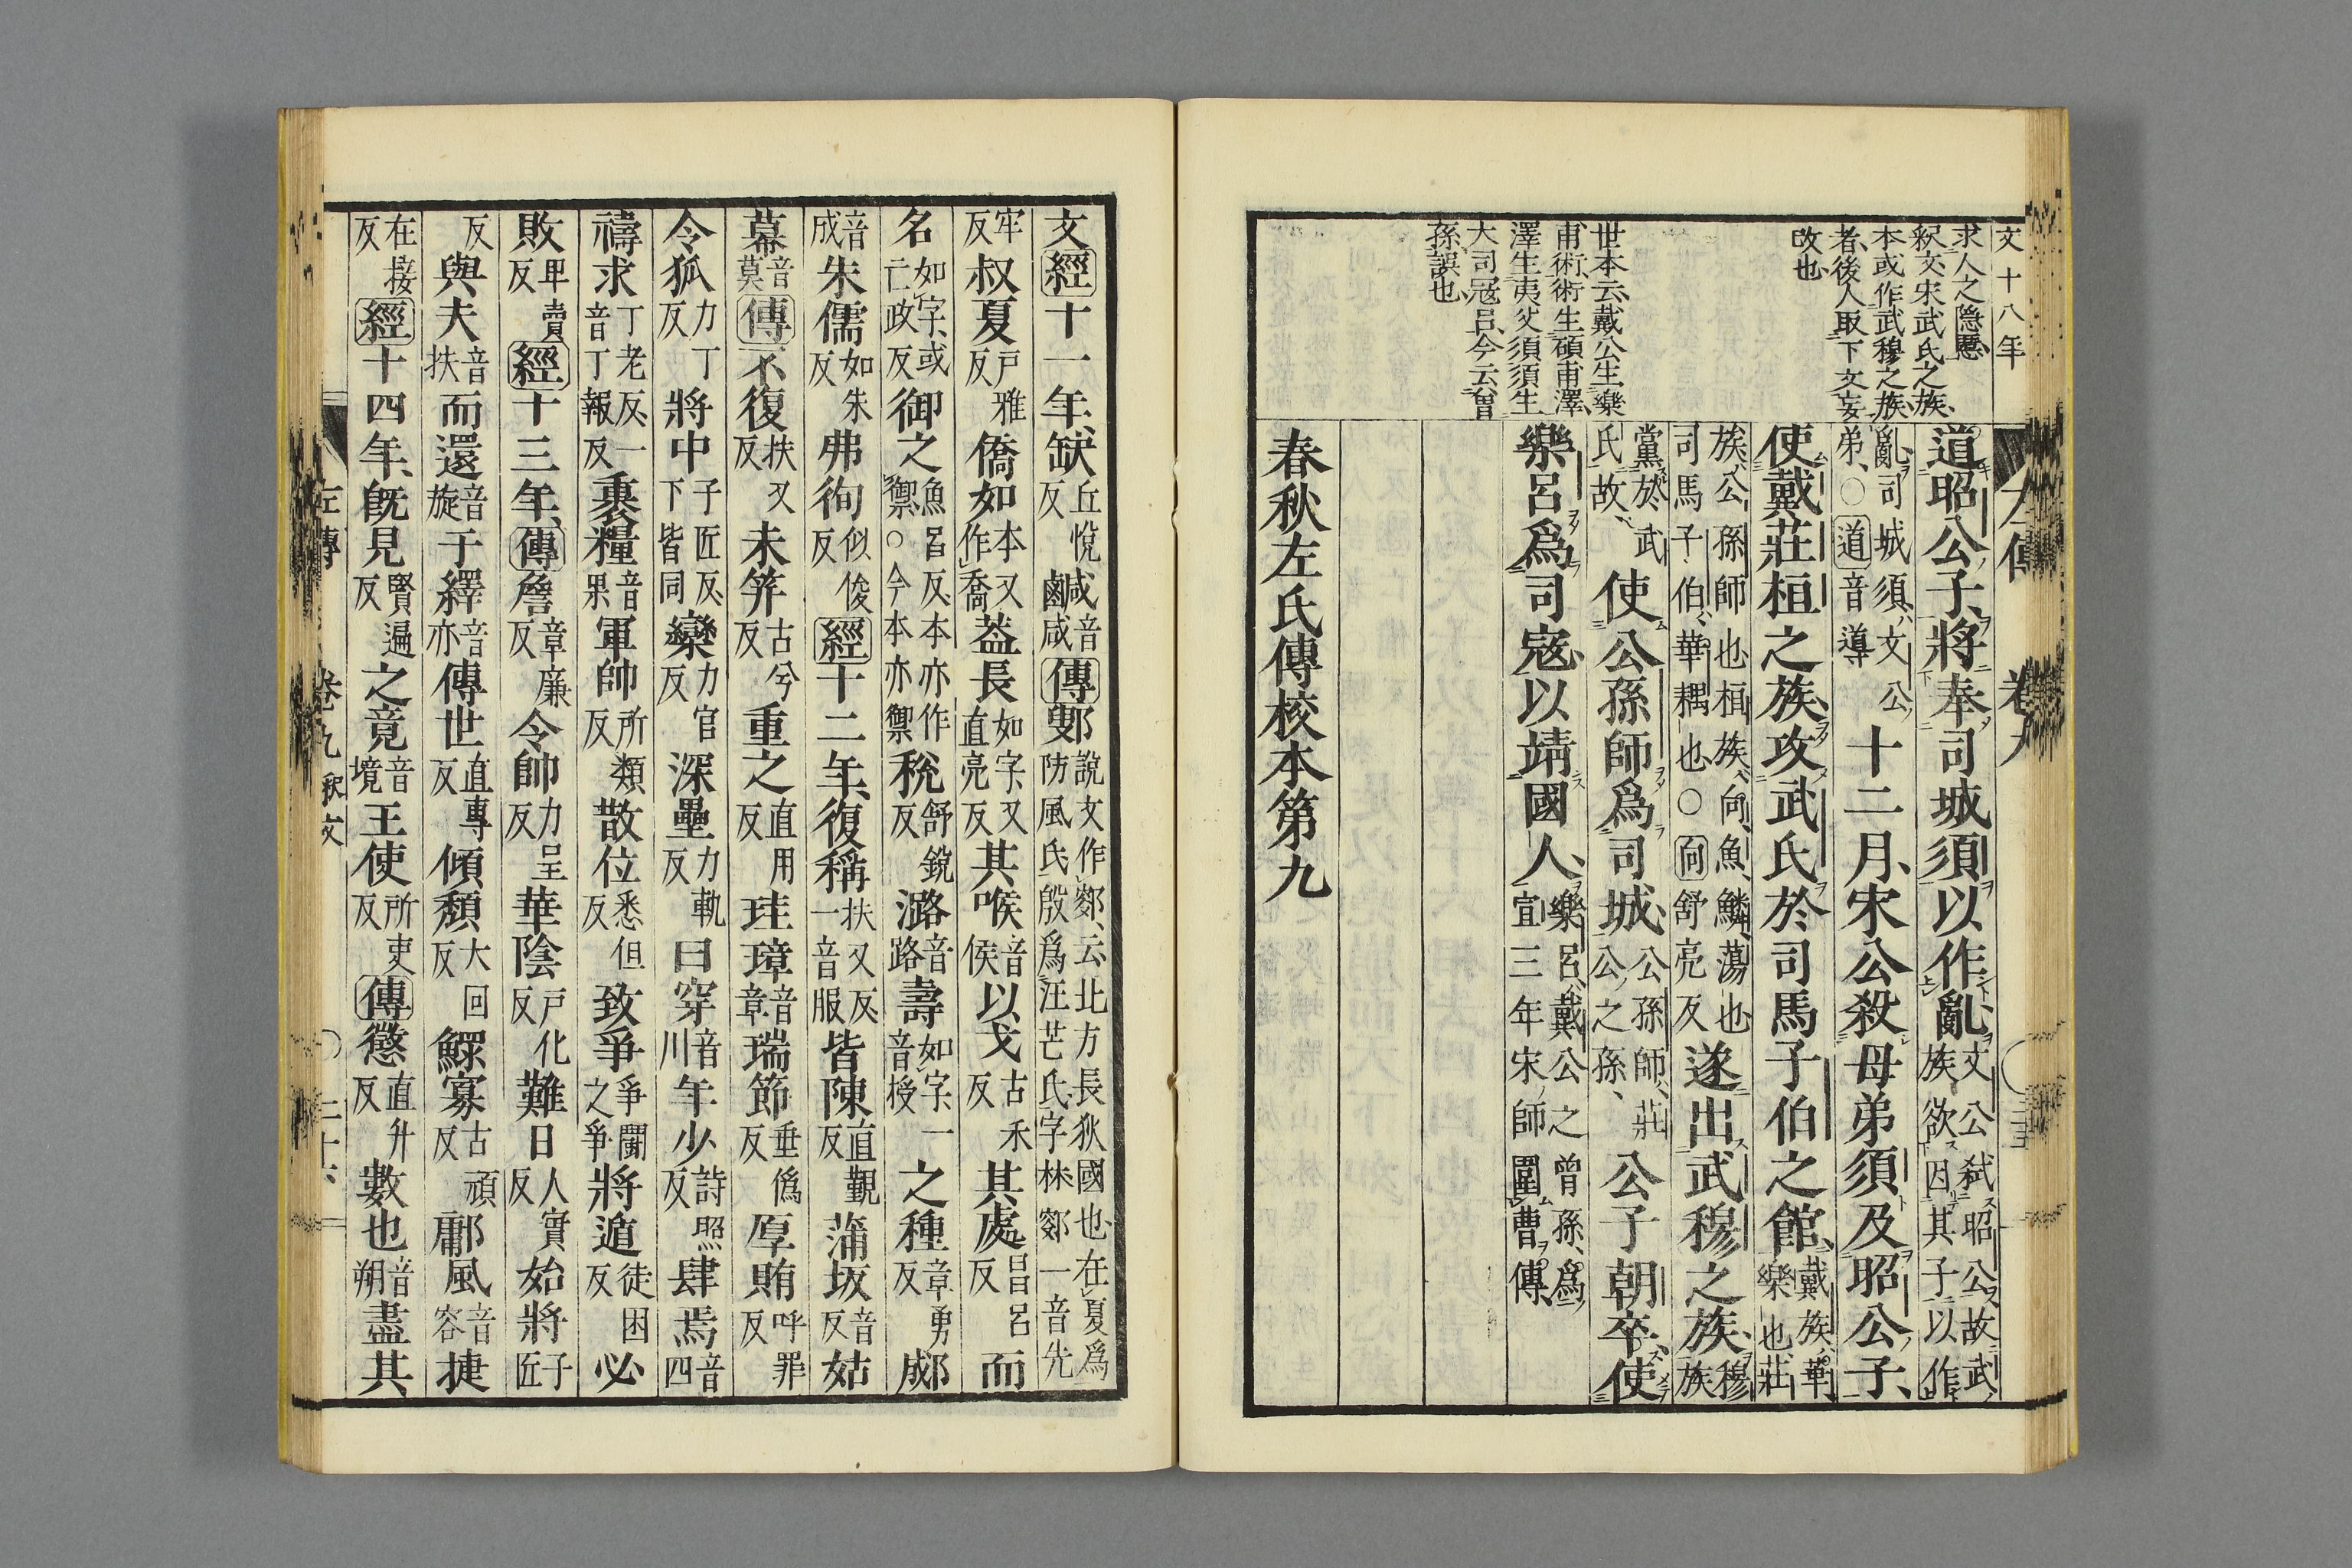 文十八年
求人之隱慝
釈文宋武氏之族
本或作武穆之族
者後人取下文妄
改也
世本云戴公生樂
甫術術生碩甫澤
澤生夷父須須生
大司寇呂今云曾
孫誤也
左傳 卷九
道昭公子將奉司城須以作亂文公弑昭公故武族欲因其子以作
亂司城須文公弟○道音導十二月宋公殺母弟須及昭公子
使戴莊桓之族攻武氏於司馬子伯之館戴族華樂也莊
族公孫師也桓族向魚鱗蕩也司馬子伯華耦也○向舒亮反遂出武穆之族穆族
黨於武氏故使公孫師爲司城公孫師莊公之孫公子朝卒使
樂呂爲司寇以靖國人樂呂戴公之曾孫爲宣三年宋師圍曹傳
春秋左氏傳校本第九
文經十一年缺丘悅反鹹音咸傳鄋說文作鄋云北方長狄國也在夏爲防風氏殷爲汪芒氏字林鄋一音先
牢反叔夏戶雅反僑如本又作喬葢長如字又直亮反其喉音侯以戈古禾反其處昌呂反而
名如字或亡政反御之魚呂反本亦作禦○今本亦禦稅舒銳反潞音路壽如字一音授之種章勇反郕
音成朱儒如朱反弗徇似俊反經十二年復稱扶又反一音服皆陳直覲反蒲坂音反姑
幕音莫傳不復扶又反未笄古兮反重之直用反珪璋音章瑞節垂僞反厚賄呼罪反
令狐力丁反將中子匠反下皆同欒力官反深壘力軌反曰穿音川年少詩照反肆焉音四
禱求丁老反一音丁報反裹糧音果軍帥所類反散位悉但反致爭爭鬭之爭將遁徒困反必
敗卑賣反經十三年傳詹章廉反令帥力呈反華陰戶化反難日人實反始將子匠
反與夫音扶而還音旋于繹音亦傳世直專反傾頽大回反鰥寡古頑反鄘風音容捷
在接反經十四年旣見賢遍反之竟音境王使所吏反傳懲直升反數也音朔盡其
左傳 卷九 釈文 ○ 二十六